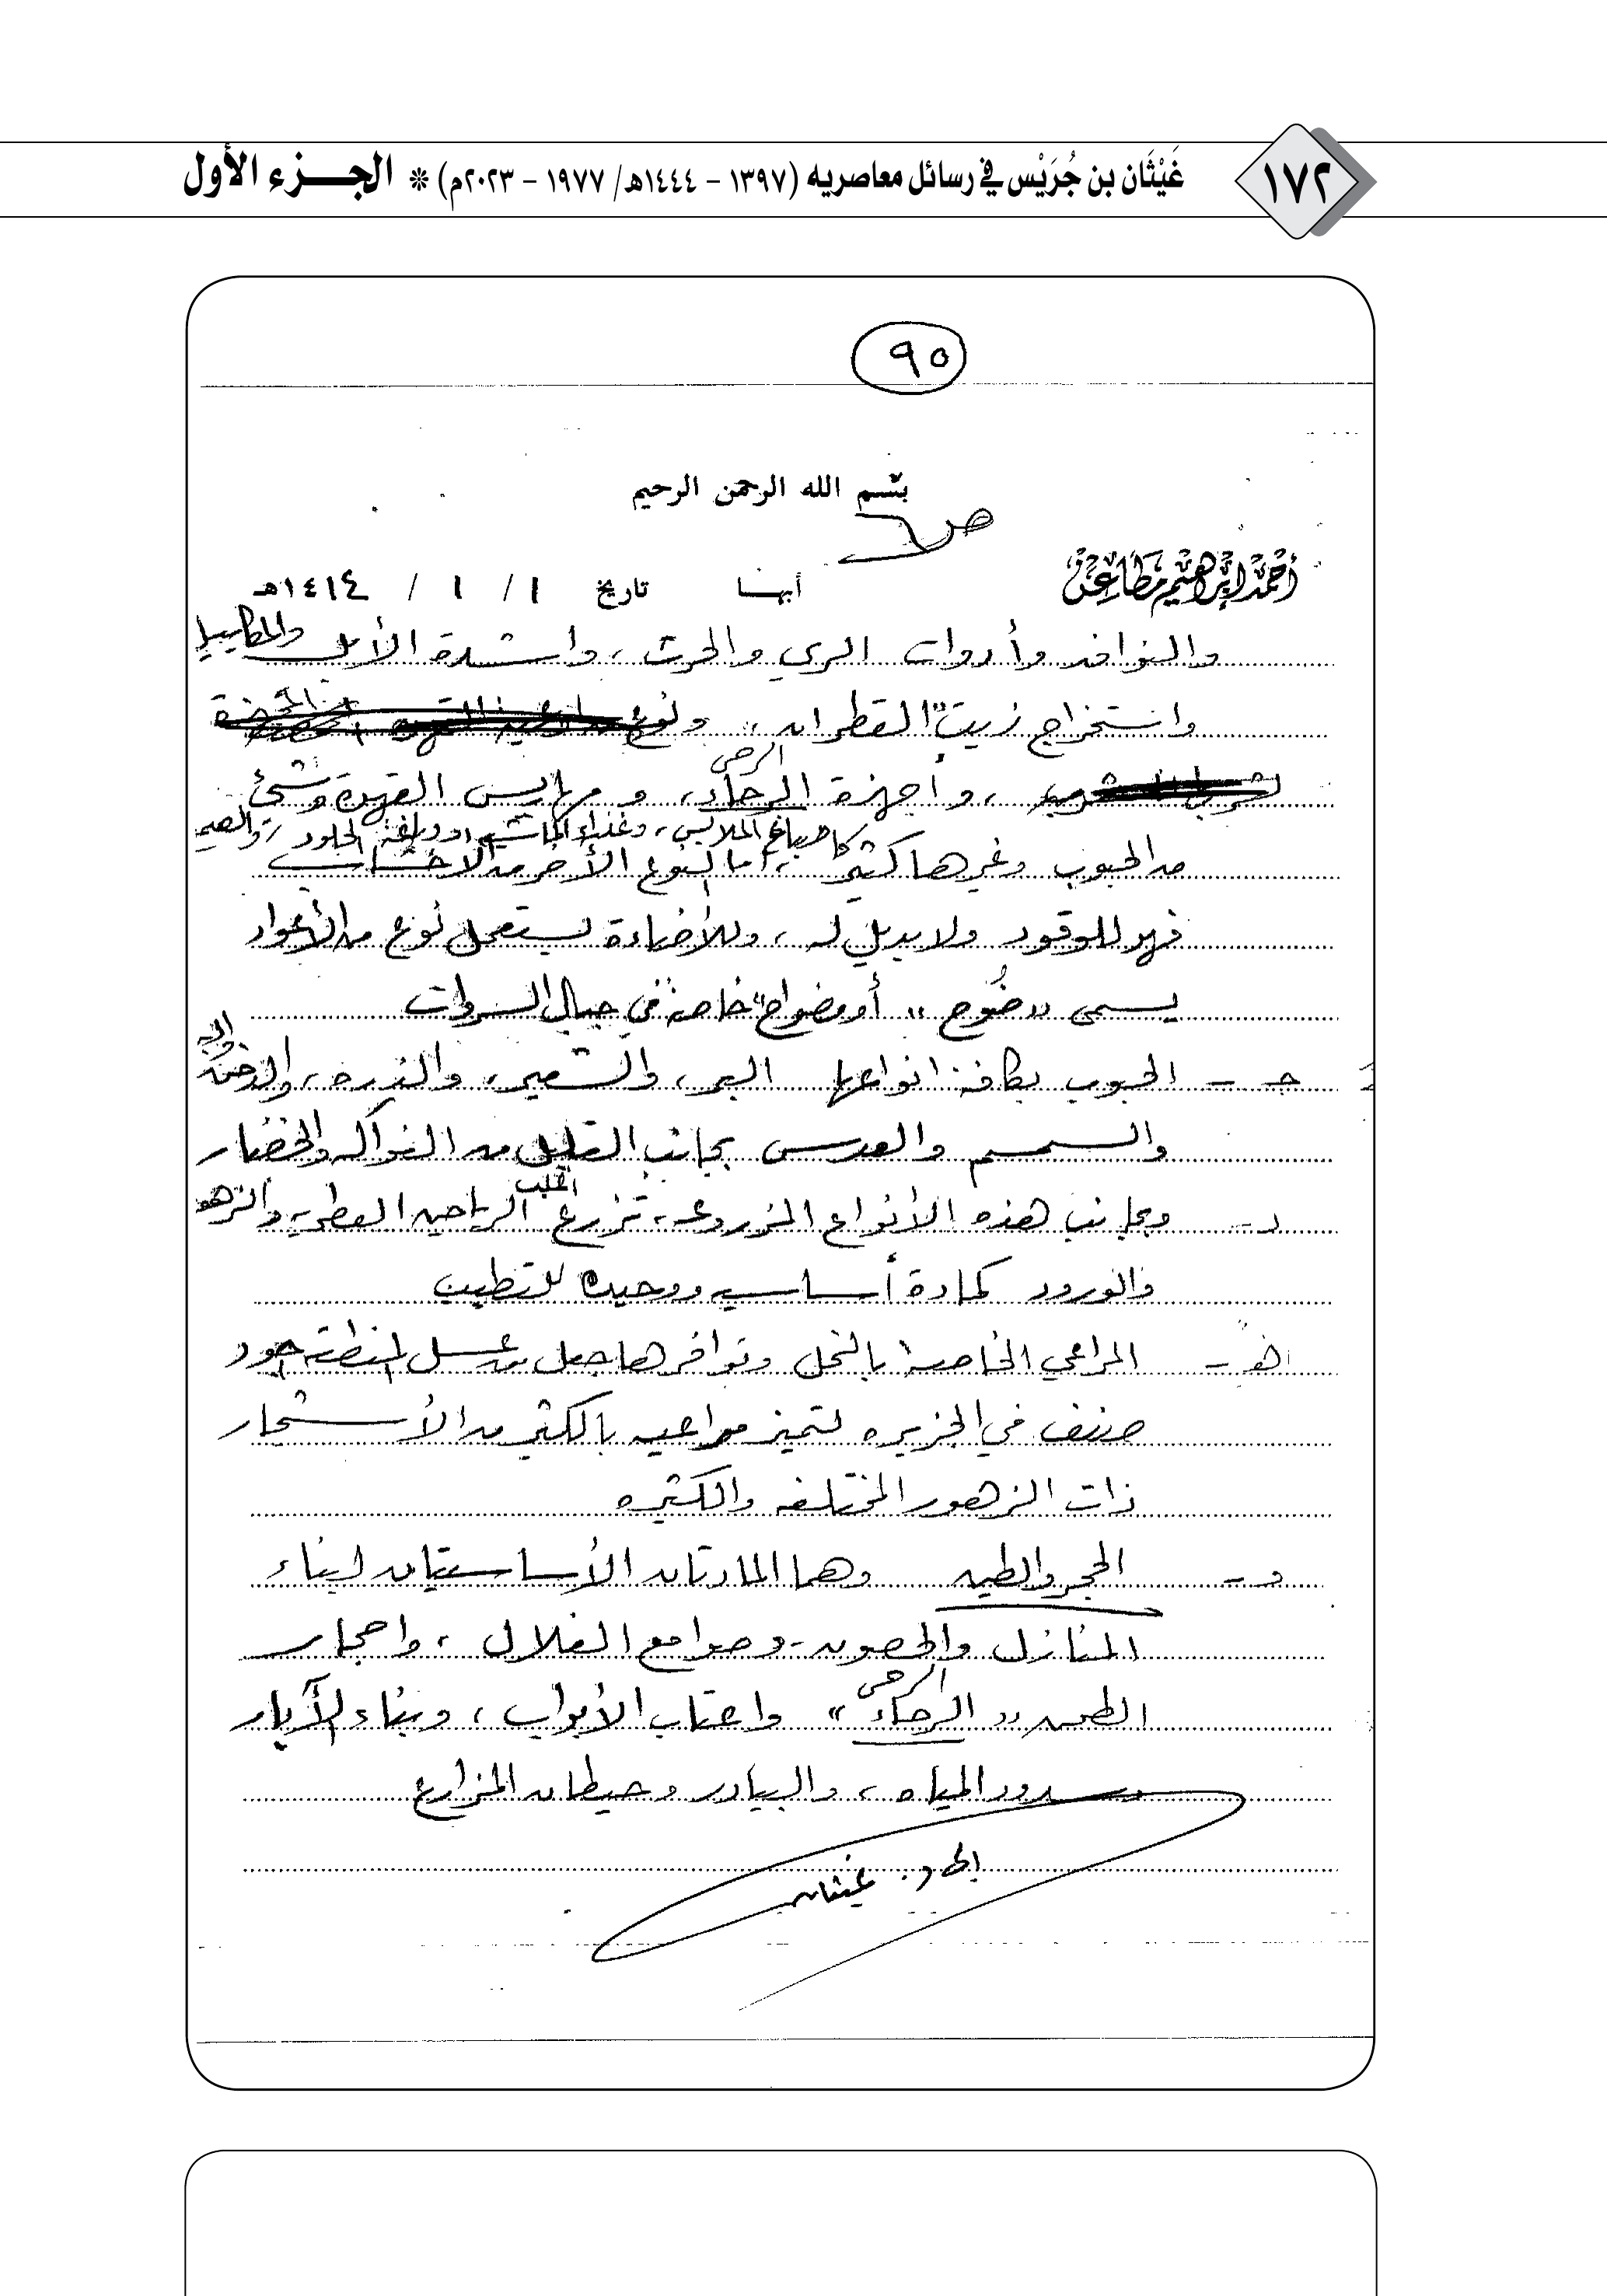 ١٧٢
غَيْثَان بن جُرَيْس في رسائل معاصريه (١٣٩٧ - ١٤٤٤هـ/ ١٩٧٧ - ٢٠٢٣م) * الجـزء الأول
٩٥
بسم الله الرحمن الرحيم
أحمد إبراهيم مطاعن
أبها تاريخ ١ / ١ / ١٤١٤هـ
والنوافد وأدوات الري والحرث ، واشدة الأبل والمكاييل
واستخراج زيت "القطران" ، ونوع
، وأجهزة الرحاء ، ومهاريس القهوة وشئ
الرحى
من الحبوب وغيرها كثير ، أما النوع الأخر من الأخشاب
كاصباغ الملابس ، وغذاء الماشيه ودباغة الجلود ،
فهو للوقود ولا بديل له ، وللأضاءة يستعمل نوع من الأعواد
يسمى "ضُوح" أو مضواح" خاصة في جبال السروات
جـ - الحبوب بكافة انواعها البر ، والشعير ، والذره ، والدخن
والسمسم والعدس بجانب القليل من الفواكه والخضار
د - وبجانب هذه الأنواع المزروعه ، تزرع الرياحين العطريه والزهو
والورود كمادة أساسيه ووحيده للتطييب
هـ - المراعي الخاصة بالنحل وتوافرها جعل من عسل المنطقه اجود
صنف في الجزيره لتميز مراعيه بالكثير من الأشجار
ذات الزهور المختلفه والكثيره
و - الحجر والطين وهما المادتان الأساسيتان لبناء
المنازل والحصون - وصوامع الغلال ، واحجار
الطحن "الرحاء" واعتاب الأبواب ، وبناء الآبار
الرحى
وسدود المياه ، والبيادر وحيطان المزارع
إلى د. غيثان